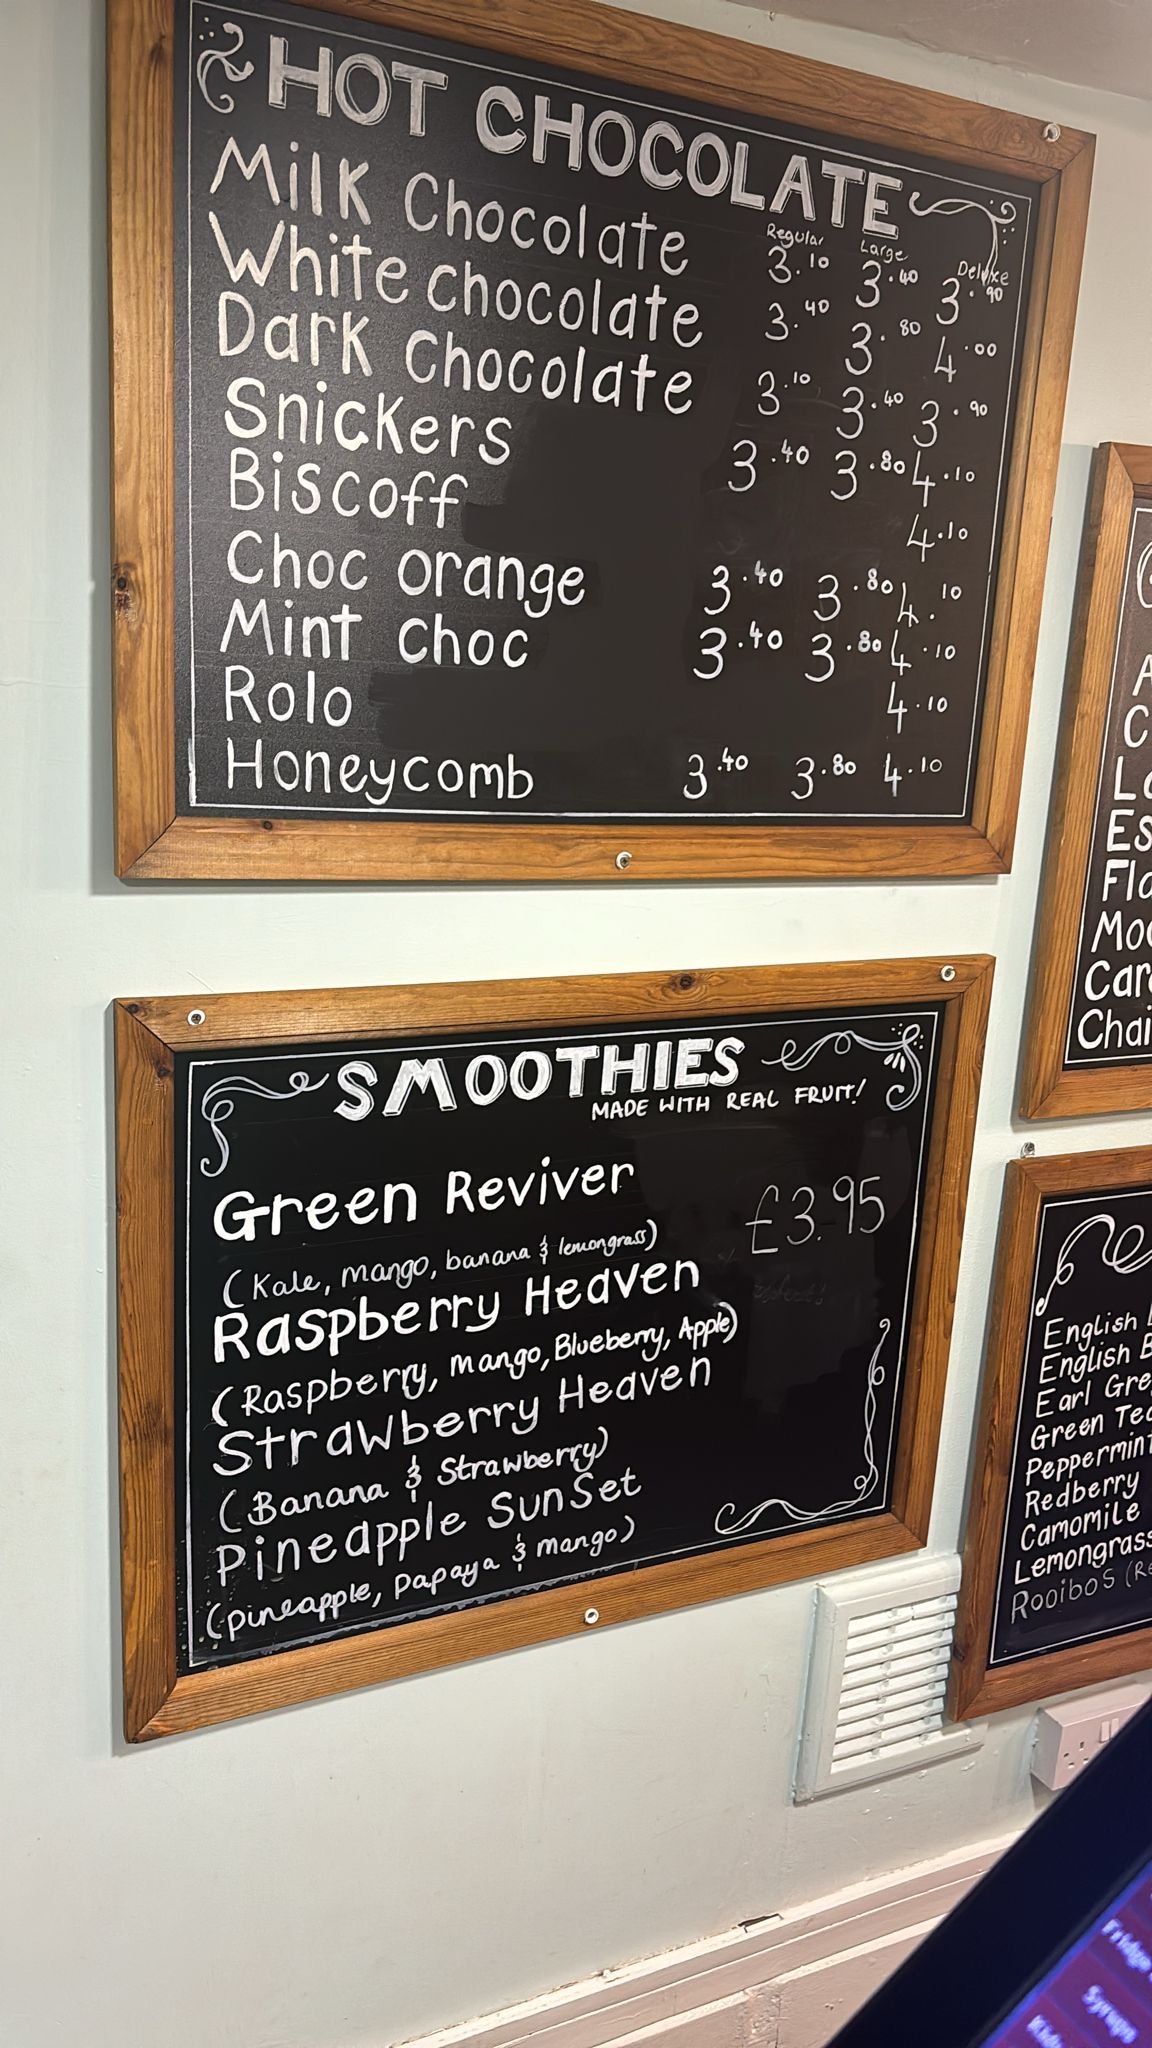 HOT CHOCOLATE
Regular Large Deluxe
Milk Chocolate 3.10 3.40 3.90
White chocolate 3.40 3.80 4.00
Dark chocolate 3.10 3.40 3.90
Snickers 3.40 3.80 4.10
Biscoff 4.10
Choc orange 3.40 3.80 4.10
Mint choc 3.40 3.80 4.10
Rolo 4.10
Honeycomb 3.40 3.80 4.10
SMOOTHIES
MADE WITH REAL FRUIT!
Green Reviver £3.95
(Kale, mango, banana & lemongrass)
Raspberry Heaven
(Raspberry, Mango, Blueberry, Apple)
Strawberry Heaven
(Banana & Strawberry)
Pineapple SunSet
(pineapple, Papaya & mango)
Chai
English
English
Earl
Green
Peppermint
Redberry
Camomile
Lemongrass
Rooibos
Fridge
Syrups